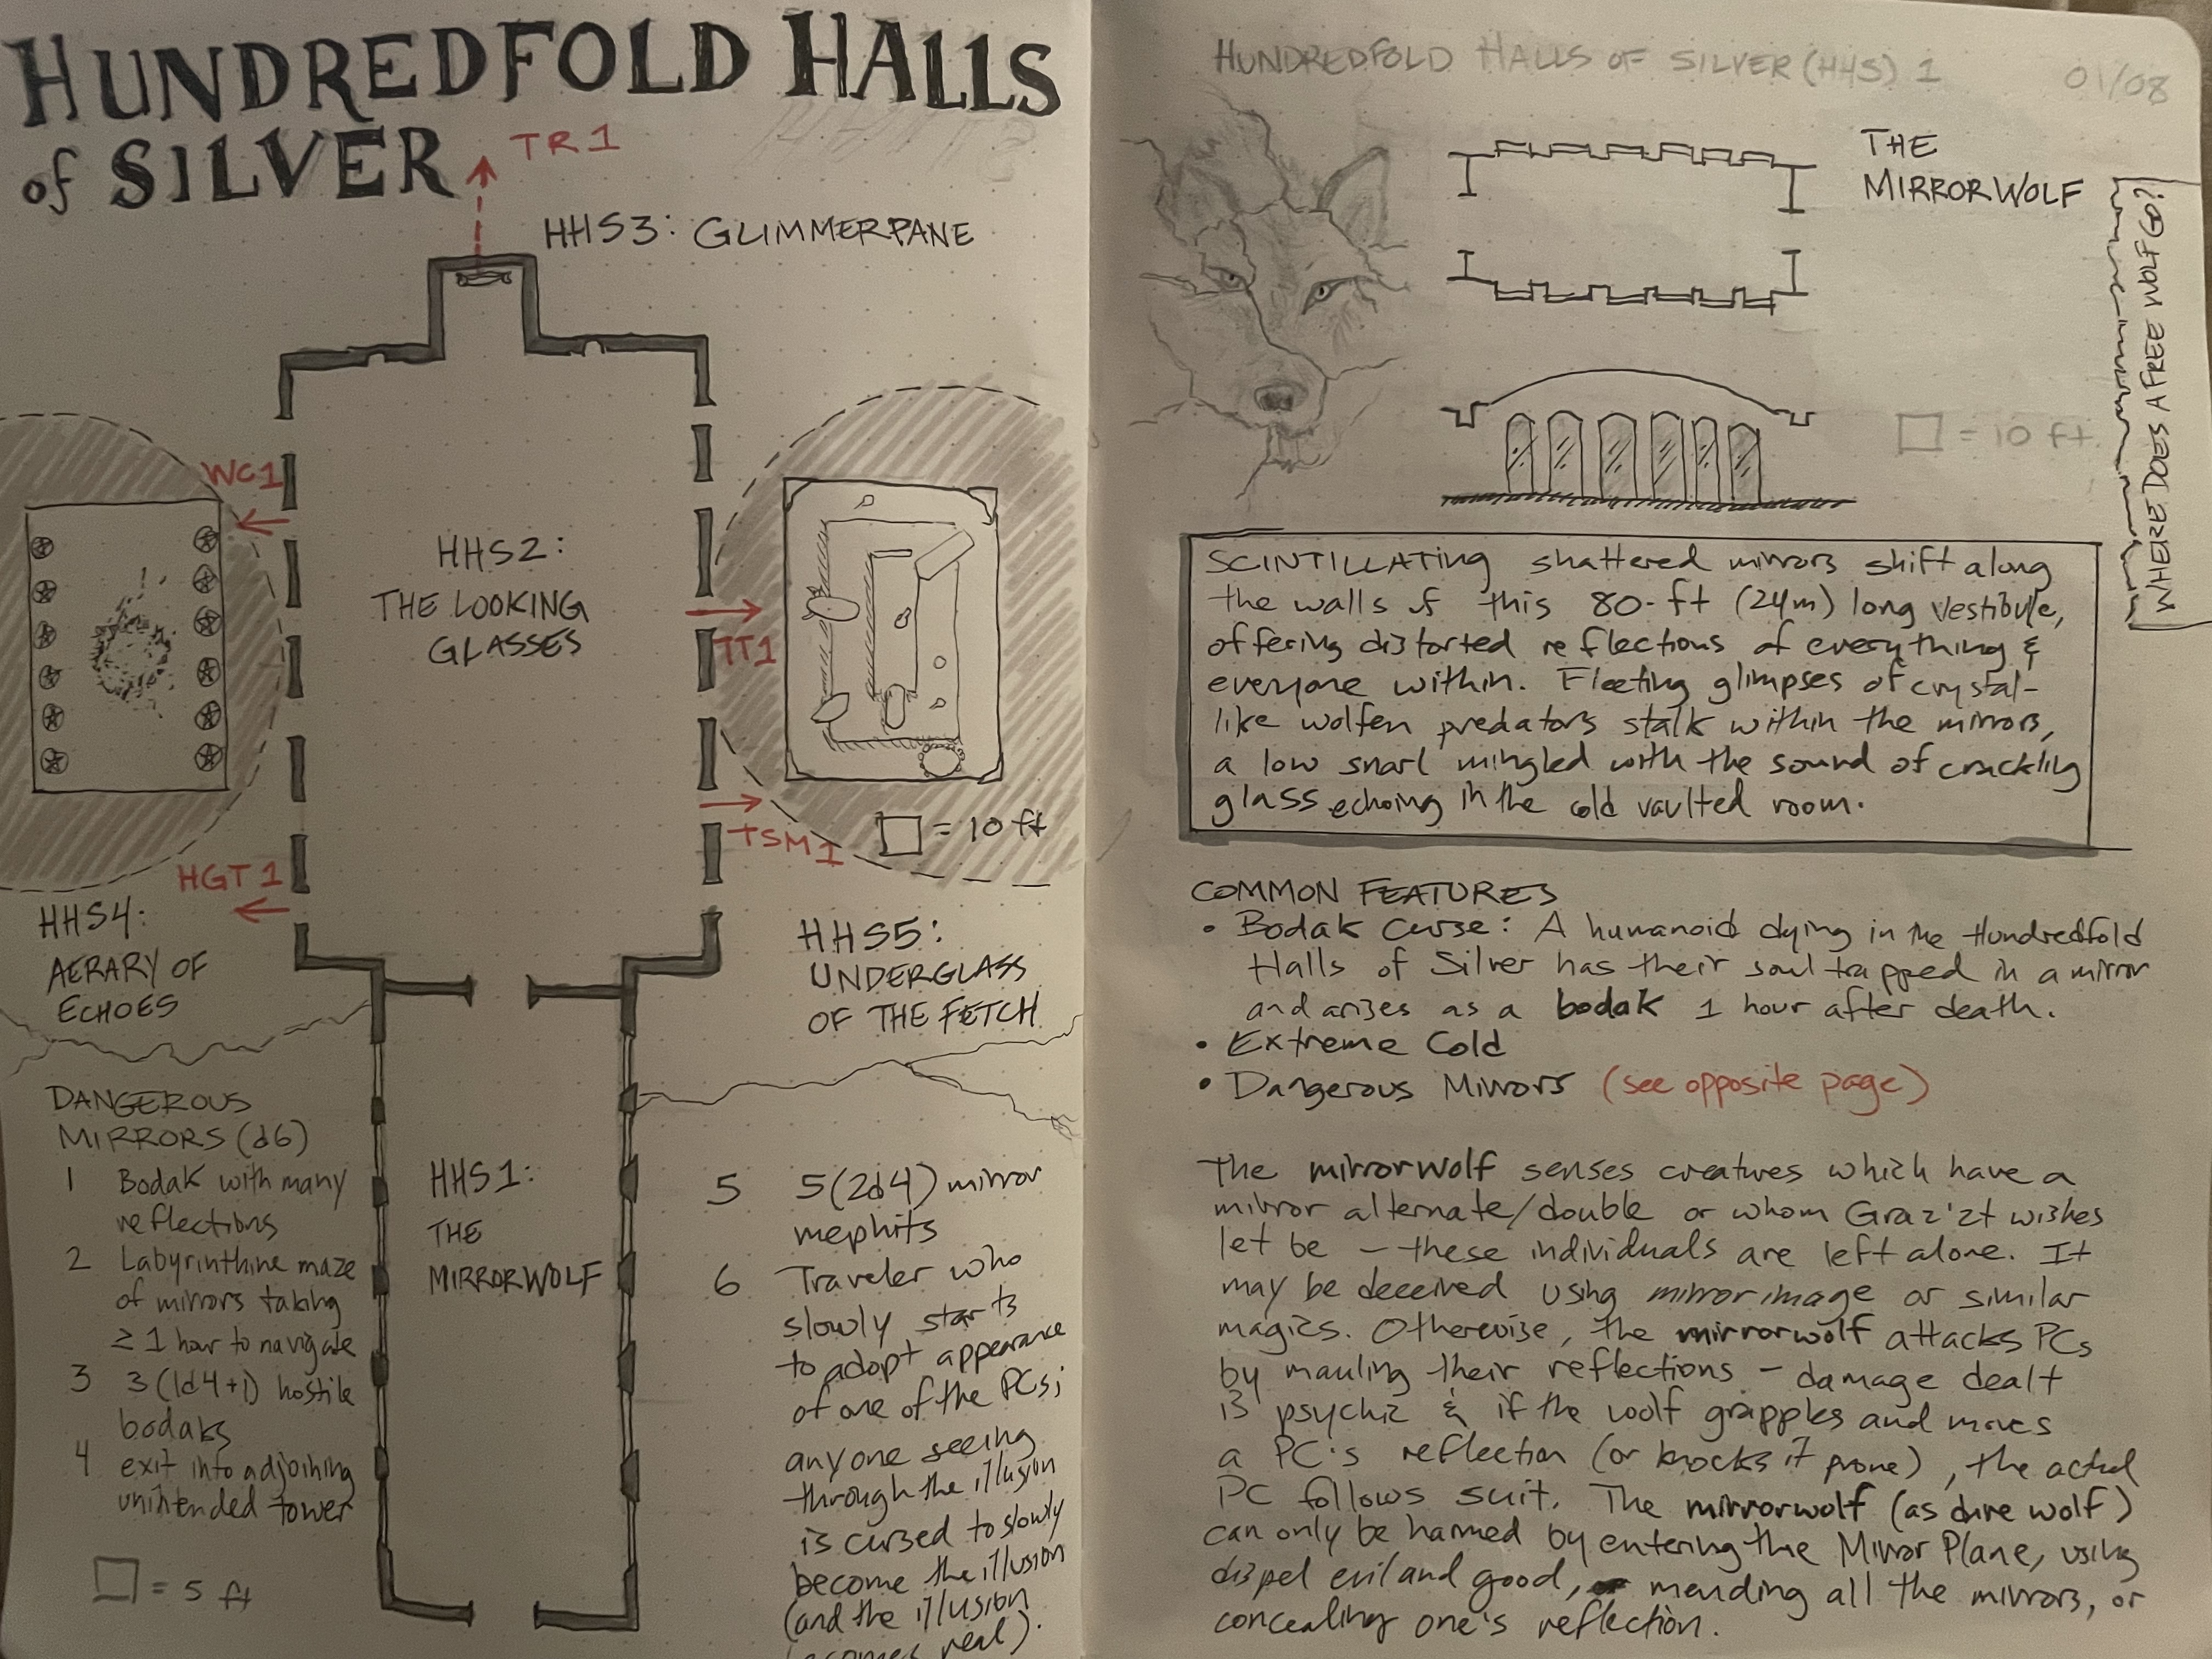 HUNDREDFOLD HALLS
of SILVER
TR1
HHS3: GLIMMERPANE
WC1
HHS2:
THE LOOKING
GLASSES
TT1
TSM1
= 10 ft
HGT1
HHS4:
AERARY OF
ECHOES
HHS5:
UNDERGLASS
OF THE FETCH
DANGEROUS
MIRRORS (d6)
1 Bodak with many
reflections
2 Labyrinthine maze
of mirrors taking
≥ 1 hour to navigate
3 3 (1d4+1) hostile
bodaks
4 exit into adjoining
unintended tower
= 5 ft
HHS1:
THE
MIRRORWOLF
5 5 (2d4) mirror
mephits
6 Traveler who
slowly starts
to adopt appearance
of one of the PCs;
anyone seeing
through the illusion
is cursed to slowly
become the illusion
(and the illusion
becomes real).
HUNDREDFOLD HALLS OF SILVER (HHS) 1
01/08
THE
MIRRORWOLF
WHERE DOES A FREE WOLF GO?
= 10 ft.
SCINTILLATING shattered mirrors shift along
the walls of this 80-ft (24m) long vestibule,
offering distorted reflections of everything &
everyone within. Fleeting glimpses of crystal-
like wolfen predators stalk within the mirrors,
a low snarl mingled with the sound of crackling
glass echoing in the cold vaulted room.
COMMON FEATURES
• Bodak Curse: A humanoid dying in the Hundredfold
Halls of Silver has their soul trapped in a mirror
and arises as a bodak 1 hour after death.
• Extreme Cold
• Dangerous Mirrors (see opposite page)
The mirrorwolf senses creatures which have a
mirror alternate/double or whom Graz'zt wishes
let be – these individuals are left alone. It
may be deceived using mirror image or similar
magics. Otherwise, the mirrorwolf attacks PCs
by mauling their reflections – damage dealt
is psychic & if the wolf grapples and moves
a PC's reflection (or knocks it prone), the actual
PC follows suit. The mirrorwolf (as dire wolf)
can only be harmed by entering the Mirror Plane, using
dispel evil and good, mending all the mirrors, or
concealing one's reflection.